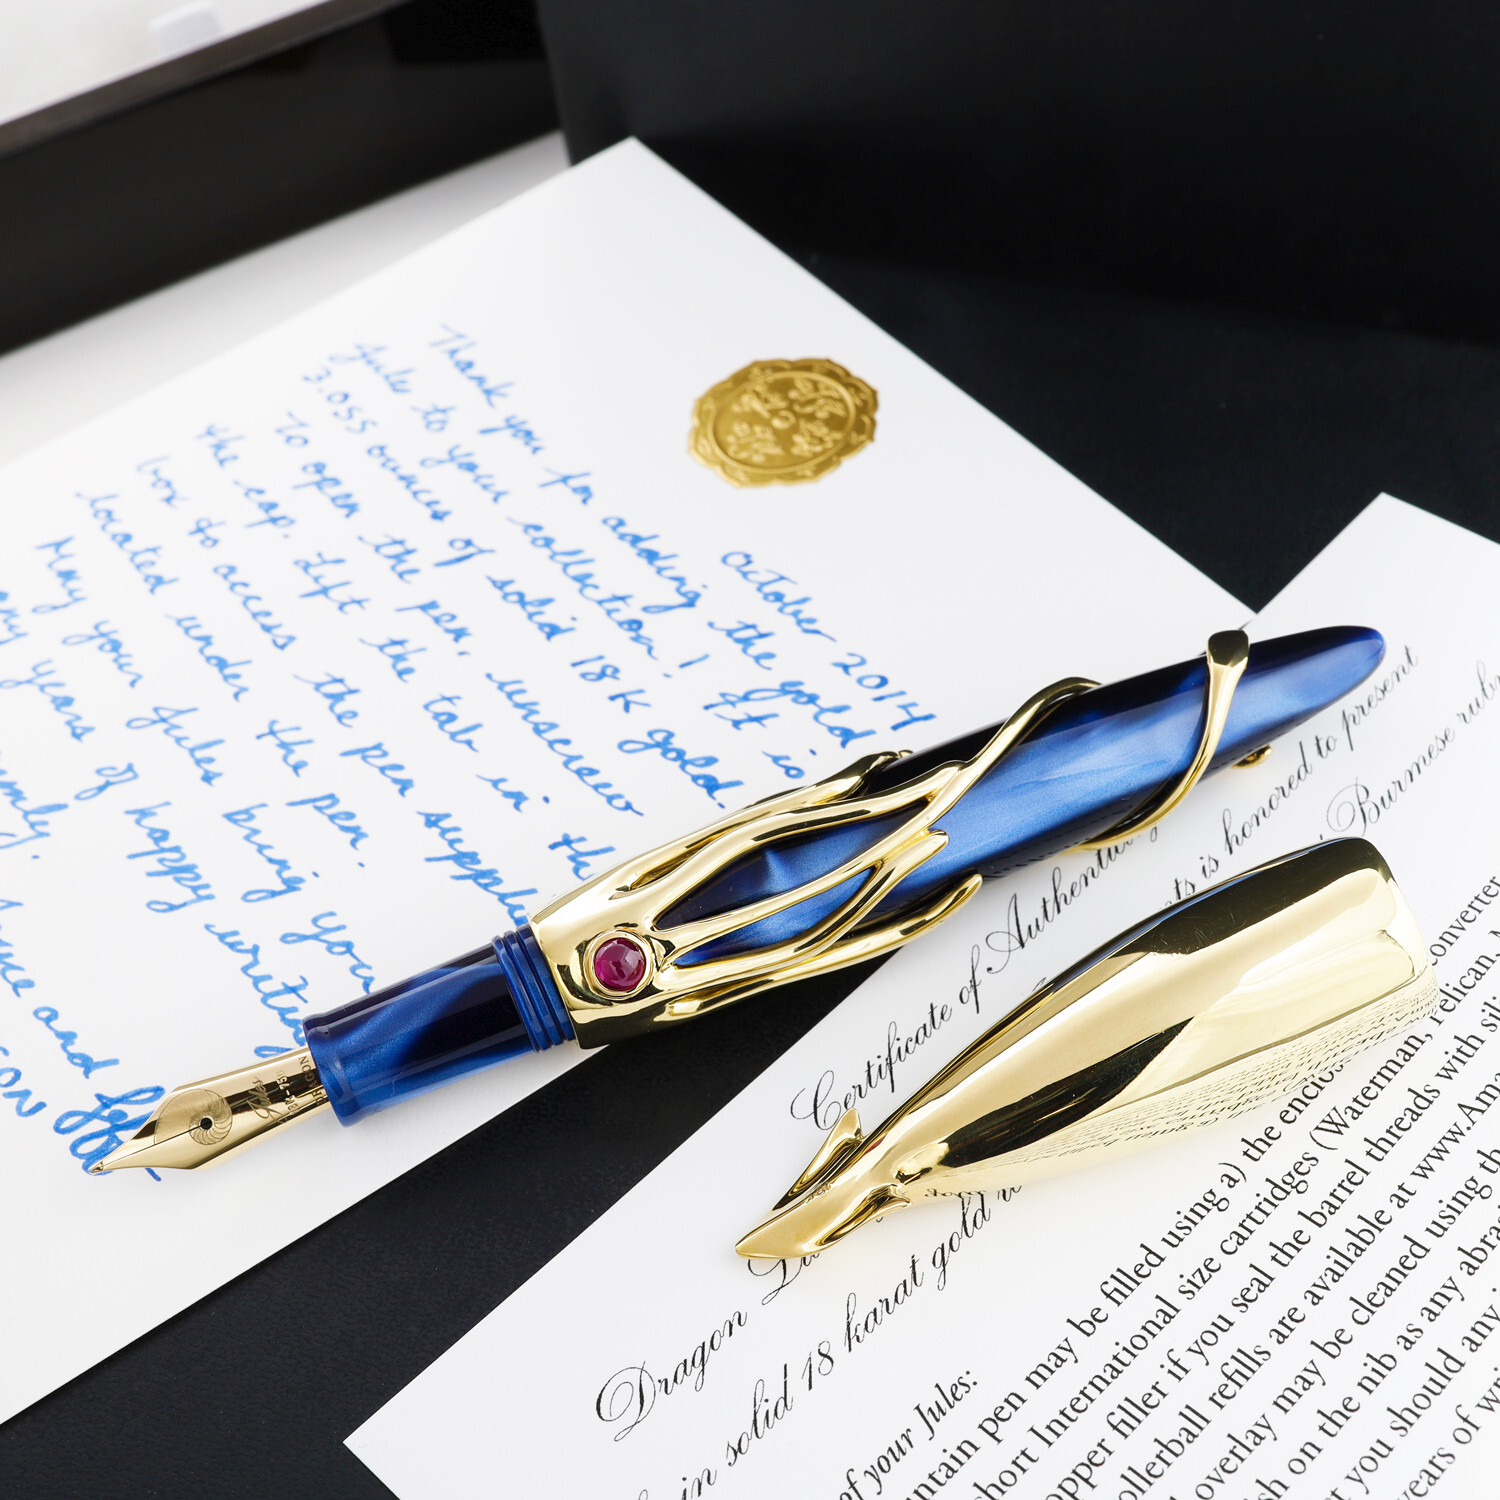 October 2014
Thank you for adding the gold
Jules to your collection! It is
3.055 ounces of solid 18K gold.
To open the pen, unscrew
the cap. Lift the tab in th
box to access the pen supplies
located under the pen.
May your Jules bring you
any years of happy writing
Certificate of Authenticity
ts is honored to present
Burmese ruby
Dragon
in solid 18 karat gold
of your Jules:
untain pen may be filled using a) the enclos
converter,
short International size cartridges (Waterman,
elican,
opper filler if you seal the barrel threads with sil
ollerball refills are available at www.Ama
overlay may be cleaned using th
sh on the nib as any abra
t you should any
years of wri